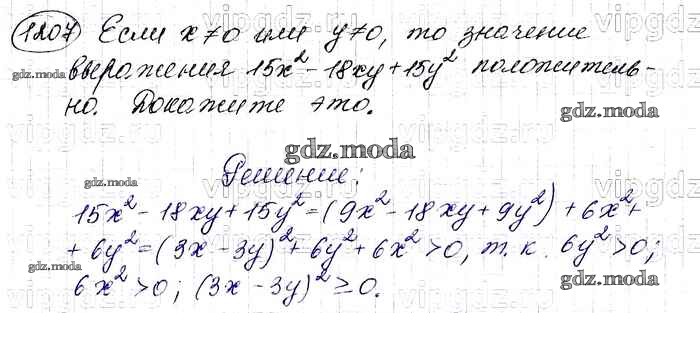 1207 Если x≠0 или y≠0, то значение
выражения 15x² - 18xy + 15y² положитель-
но. Докажите это.
gdz.moda
gdz.moda
gdz.moda
gdz.moda
Решение:
15x² - 18xy + 15y² = (9x² - 18xy + 9y²) + 6x² +
+ 6y² = (3x - 3y)² + 6y² + 6x² > 0, т.к. 6y² > 0;
gdz.moda
gdz.moda
6x² > 0; (3x - 3y)² ≥ 0.